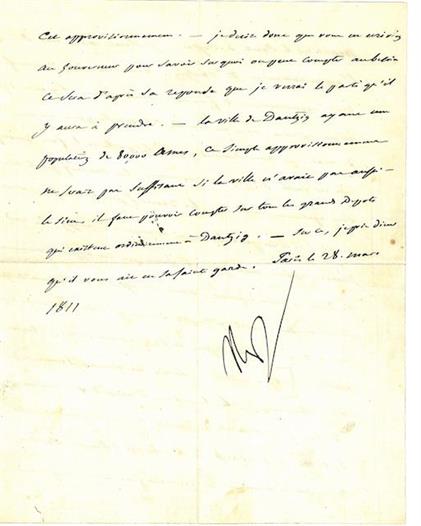 Cet approvisionnement. — je desire donc que vous en écriviez
au Gouverneur pour savoir sur quoi on peut compter au besoin
ce sera d'après sa reponse que je verrai le parti qu'il
y aura à prendre. — la ville de Dantzig ayant une
population de 80000 ames, ce simple approvisionnement
ne serait pas suffisant si la ville n'avait pas aussi
le sien. il faut pouvoir compter sur tous les grands Dépots
qui existent ordinairement à Dantzig. — Sur ce, je prie dieu
qu'il vous ait en sa sainte garde. Paris le 28. mars
1811